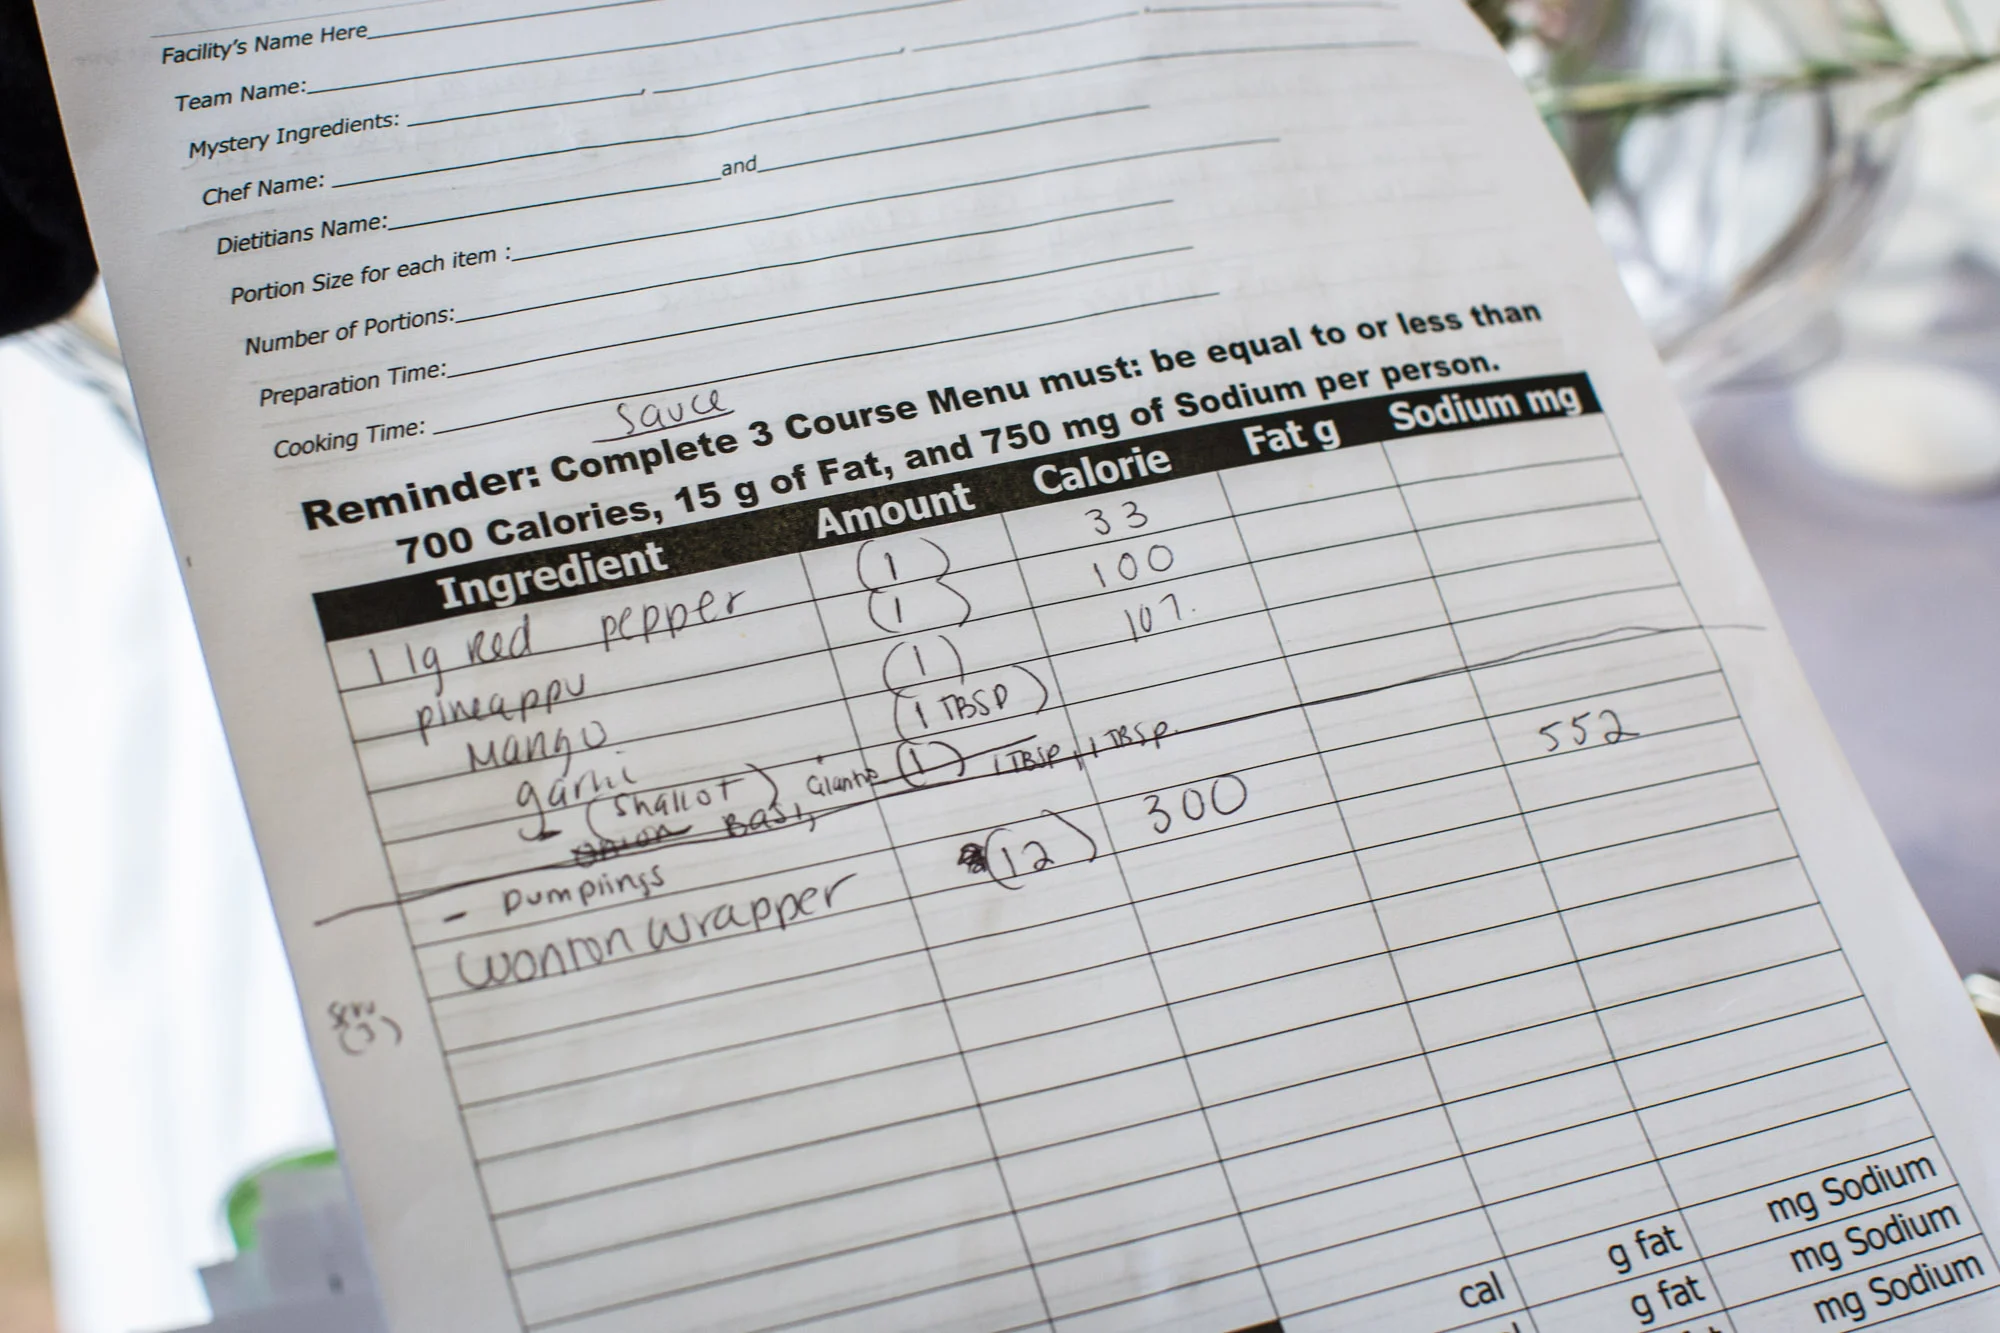 Facility's Name Here
Team Name:
Mystery Ingredients: , ,
Chef Name:
Dietitians Name: and
Portion Size for each item :
Number of Portions:
Preparation Time:
Cooking Time:
Sauce
Reminder: Complete 3 Course Menu must: be equal to or less than
700 Calories, 15 g of Fat, and 750 mg of Sodium per person.
Ingredient Amount Calorie Fat g Sodium mg
1 lg red pepper (1) 33
pineapple (1) 100
Mango (1) 107.
garlic (1 TBSP)
(Shallot) (1)
onion Basil, Cilantro 1 TBSP, 1 TBSP.
- Dumplings
wonton wrapper (12) 300 552
(3)
mg Sodium
g fat mg Sodium
cal g fat mg Sodium